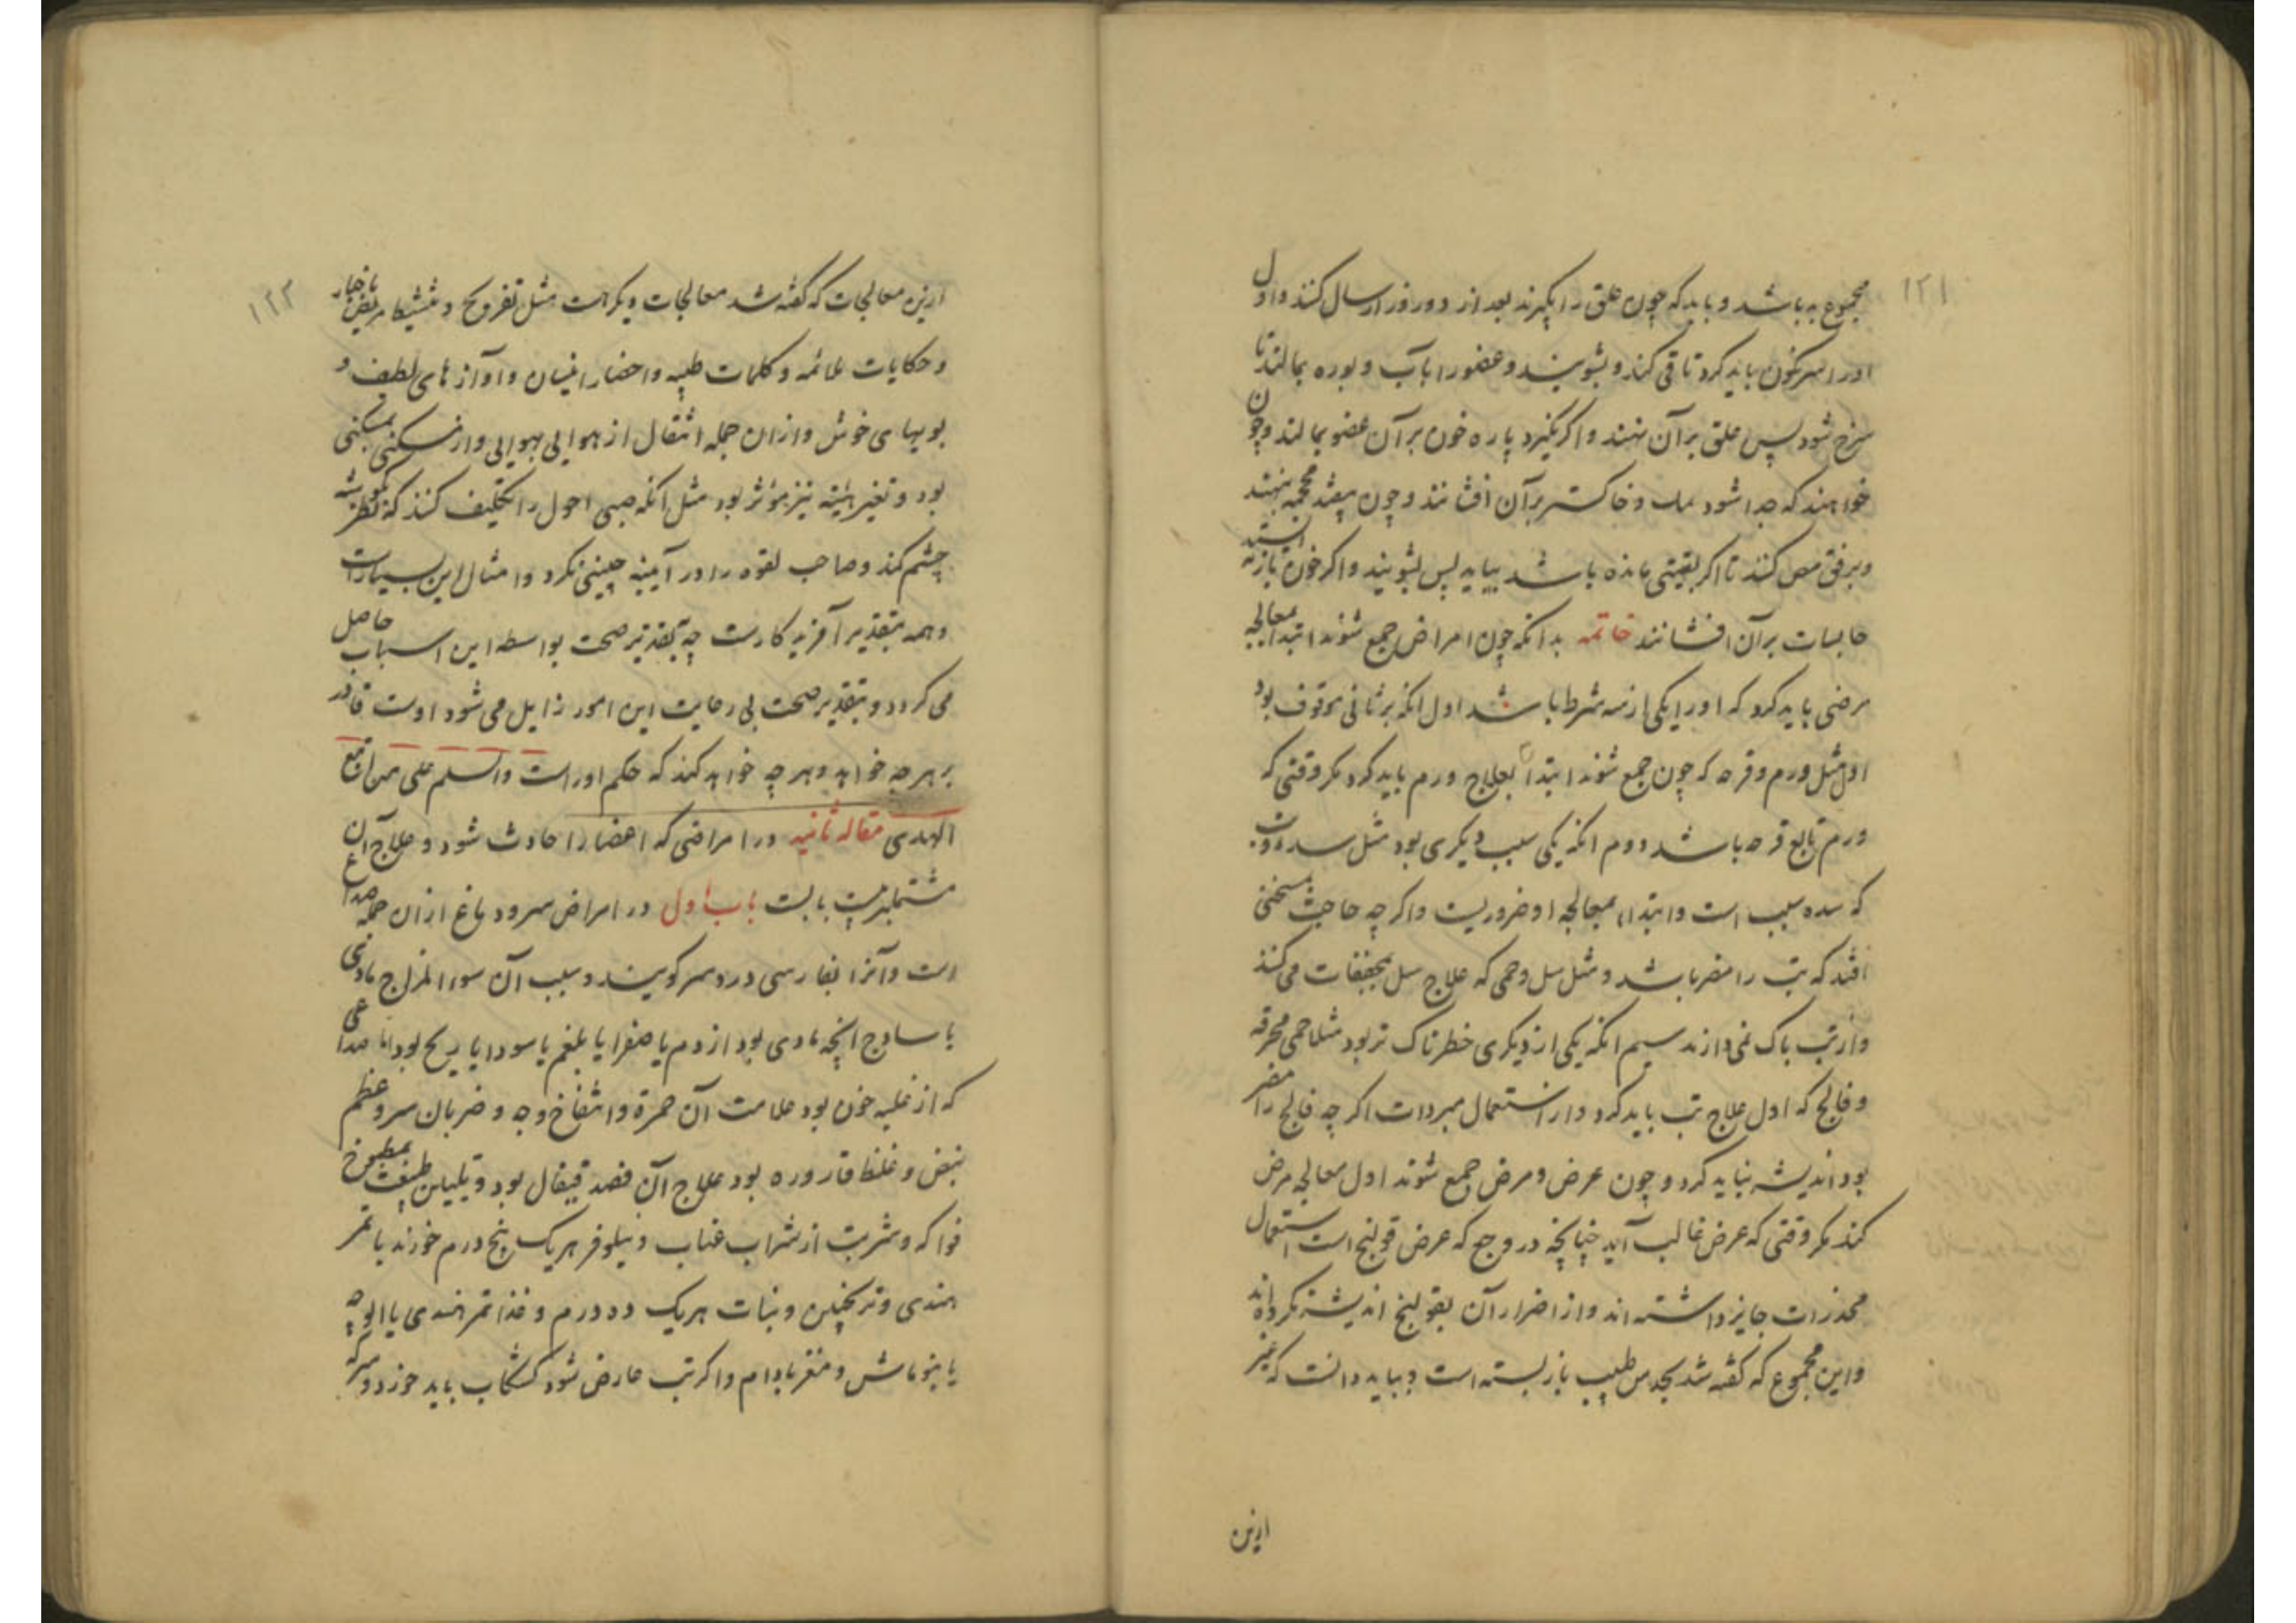 ۱۲۱
مجموع به باشد و باید که چون علق را بگیرند بعد از دو روز ارسال کنند و اول
او را سرنکون باید کرد تا قی کند و بشویند و عضو را بآب و بوره بمالند تا
سرخ شود پس علق بر آن نهند و اکر نکیرد پاره خون بر آن عضو بمالند و چون
خواهند که جدا شود و خاکستر بر آن افشانند و چون بیفتد محجمه نهند
و برفق مص کنند تا اکر بقیتی مانده باشد بیاید پس بشویند و اکر خون باز نه ایستد
حابسات بر آن افشانند خاتمه بدانکه چون امراض جمع شوند ابتدا بمعالجه
مرضی باید کرد که او را یکی از سه شرط باشد اول انکه برء ثانی موقوف بود
اول مثل ورم و قرحه که چون جمع شوند ابتدا بعلاج ورم باید کرد مکر وقتی که
ورم تابع قرحه باشد دوم انکه یکی سبب دیکری بود مثل سده و تب
که سده سبب است و ابتدا بمعالجه او ضروریست و اکر چه حاجت بمسخنی
افتد که تب را مضر باشد و مثل سل و حمی که علاج سل بمجففات می کنند
و از تب باک نمی دارند سیم انکه یکی از دیکری خطرناک تر بود مثلا حمی محرقه
و فالج که اول علاج تب باید کرد و از استعمال مبردات اکر چه فالج را مضر
بود اندیشه نباید کرد و چون عرض و مرض جمع شوند اول معالجه مرض
کنند مکر وقتی که عرض غالب آید چنانچه در وجع که عرض قولنج است استعمال
مخدرات جایز داشته اند و از اضرار آن بقولنج اندیشه نکرده اند
و این مجموع که کفته شد بحدس طبیب باز بسته است و بباید دانست که غیر
ازین
۱۲۲
ازین معالجات که کفته شد معالجات دیکر هست مثل تفریح و مریض باخبار
و حکایات ملائمه و کلمات طیبه و احضار انیسان و آوازهای لطیف و
بویهای خوش و از ان جمله انتقال از هوایی بهوایی و از مسکنی بمسکنی
بود و تغیر هیئة نیز موثر بود مثل انکه صبی احول را تکلیف کنند که نظر بکوشه
چشم کند و صاحب لقوه را در آیینه چینی نکرد و امثال این بسیارست
و همه بتقدیر آفریدکارست چه بتقدیر صحت بواسطه این اسباب حاصل
می کردد و بتقدیر صحت بی رعایت این امور زایل می شود اوست قادر
بر هر چه خواهد و هر چه خواهد کند که حکم او راست والسلم علی من اتبع
الهدی مقاله ثانیه در امراضی که اعضا را حادث شود و علاج آن
مشتملبر بیست بابست باب اول در امراض سر و دماغ از ان جمله صداع
است و آنرا بفارسی درد سر کویند و سبب آن سوء المزاج مادی
یا ساذج انچه مادی بود از دم یا صفرا یا بلغم یا سودا یا ریح بود اما صداعی
که از غلبه خون بود علامت آن حمرة و انتفاخ وجه و ضربان سر و عظم
نبض و غلظ قاروره بود علاج آن فصد قیفال بود و تلیین طبیعت بمطبوخ
فواکه و شربت از شراب عناب و نیلوفر هر یک پنج درم خورند با تمر
هندی و ترنجبین و نبات هر یک ده درم و غذا تمر هندی یا الوچه
یا بنو ماش و مغز بادام و اکر تب عارض شود کشکاب باید خورد و سرکه